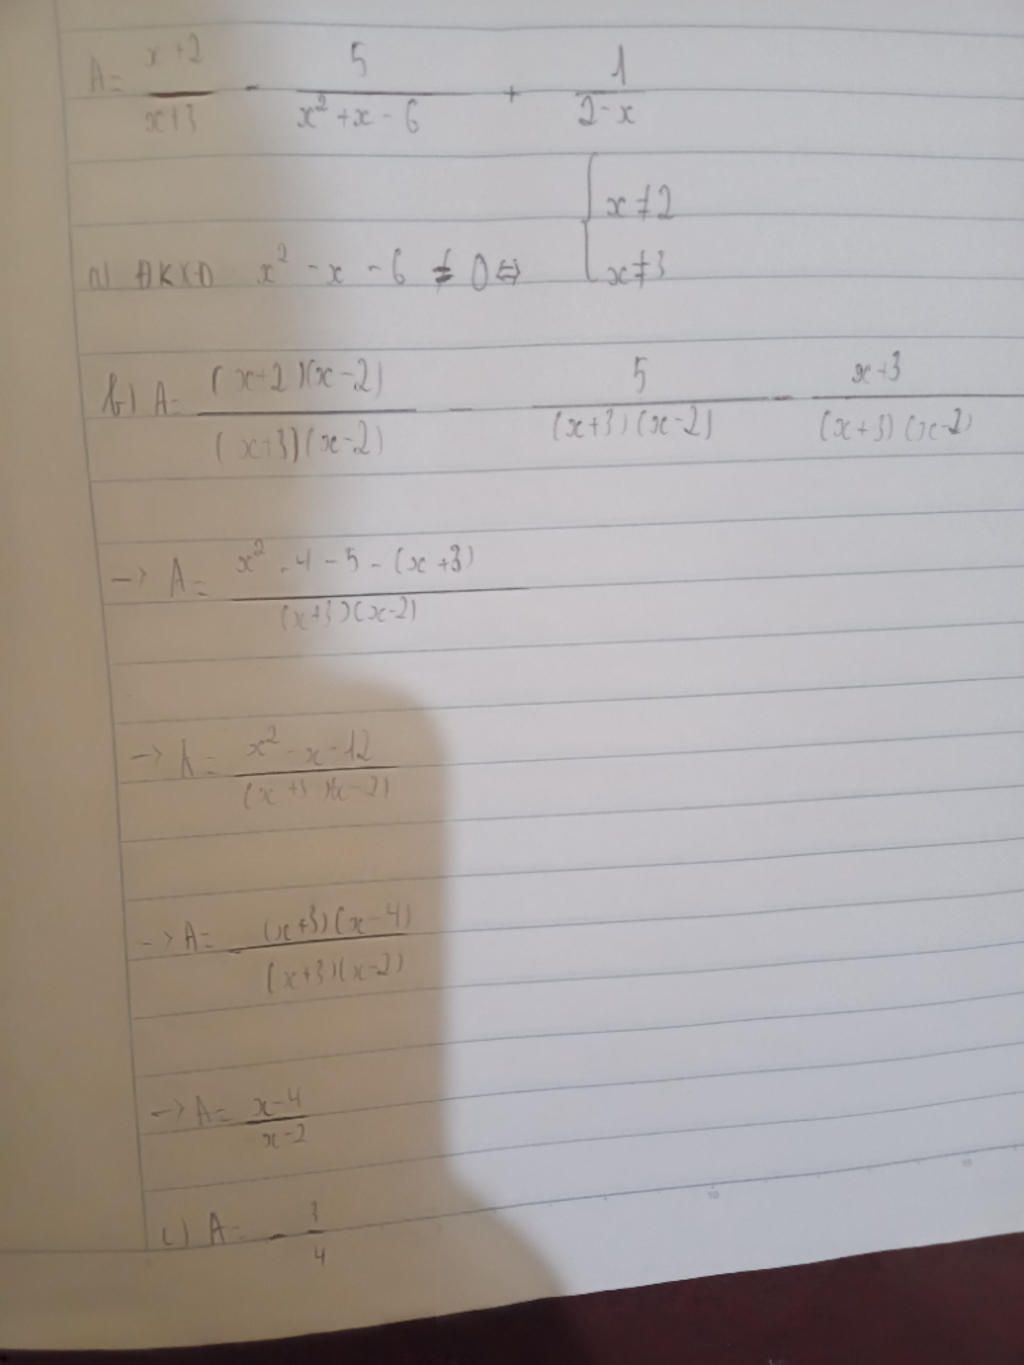 A = \frac{x+2}{x+3} - \frac{5}{x^2+x-6} + \frac{1}{2-x}
a) ĐKXĐ x^2 - x - 6 ≠ 0 ⇔ { x ≠ 2
x ≠ 3
b) A = \frac{(x+2)(x-2)}{(x+3)(x-2)} - \frac{5}{(x+3)(x-2)} - \frac{x+3}{(x+3)(x-2)}
-> A = \frac{x^2-4-5-(x+3)}{(x+3)(x-2)}
-> A = \frac{x^2-x-12}{(x+3)(x-2)}
-> A = \frac{(x+3)(x-4)}{(x+3)(x-2)}
-> A = \frac{x-4}{x-2}
c) A = -\frac{3}{4}